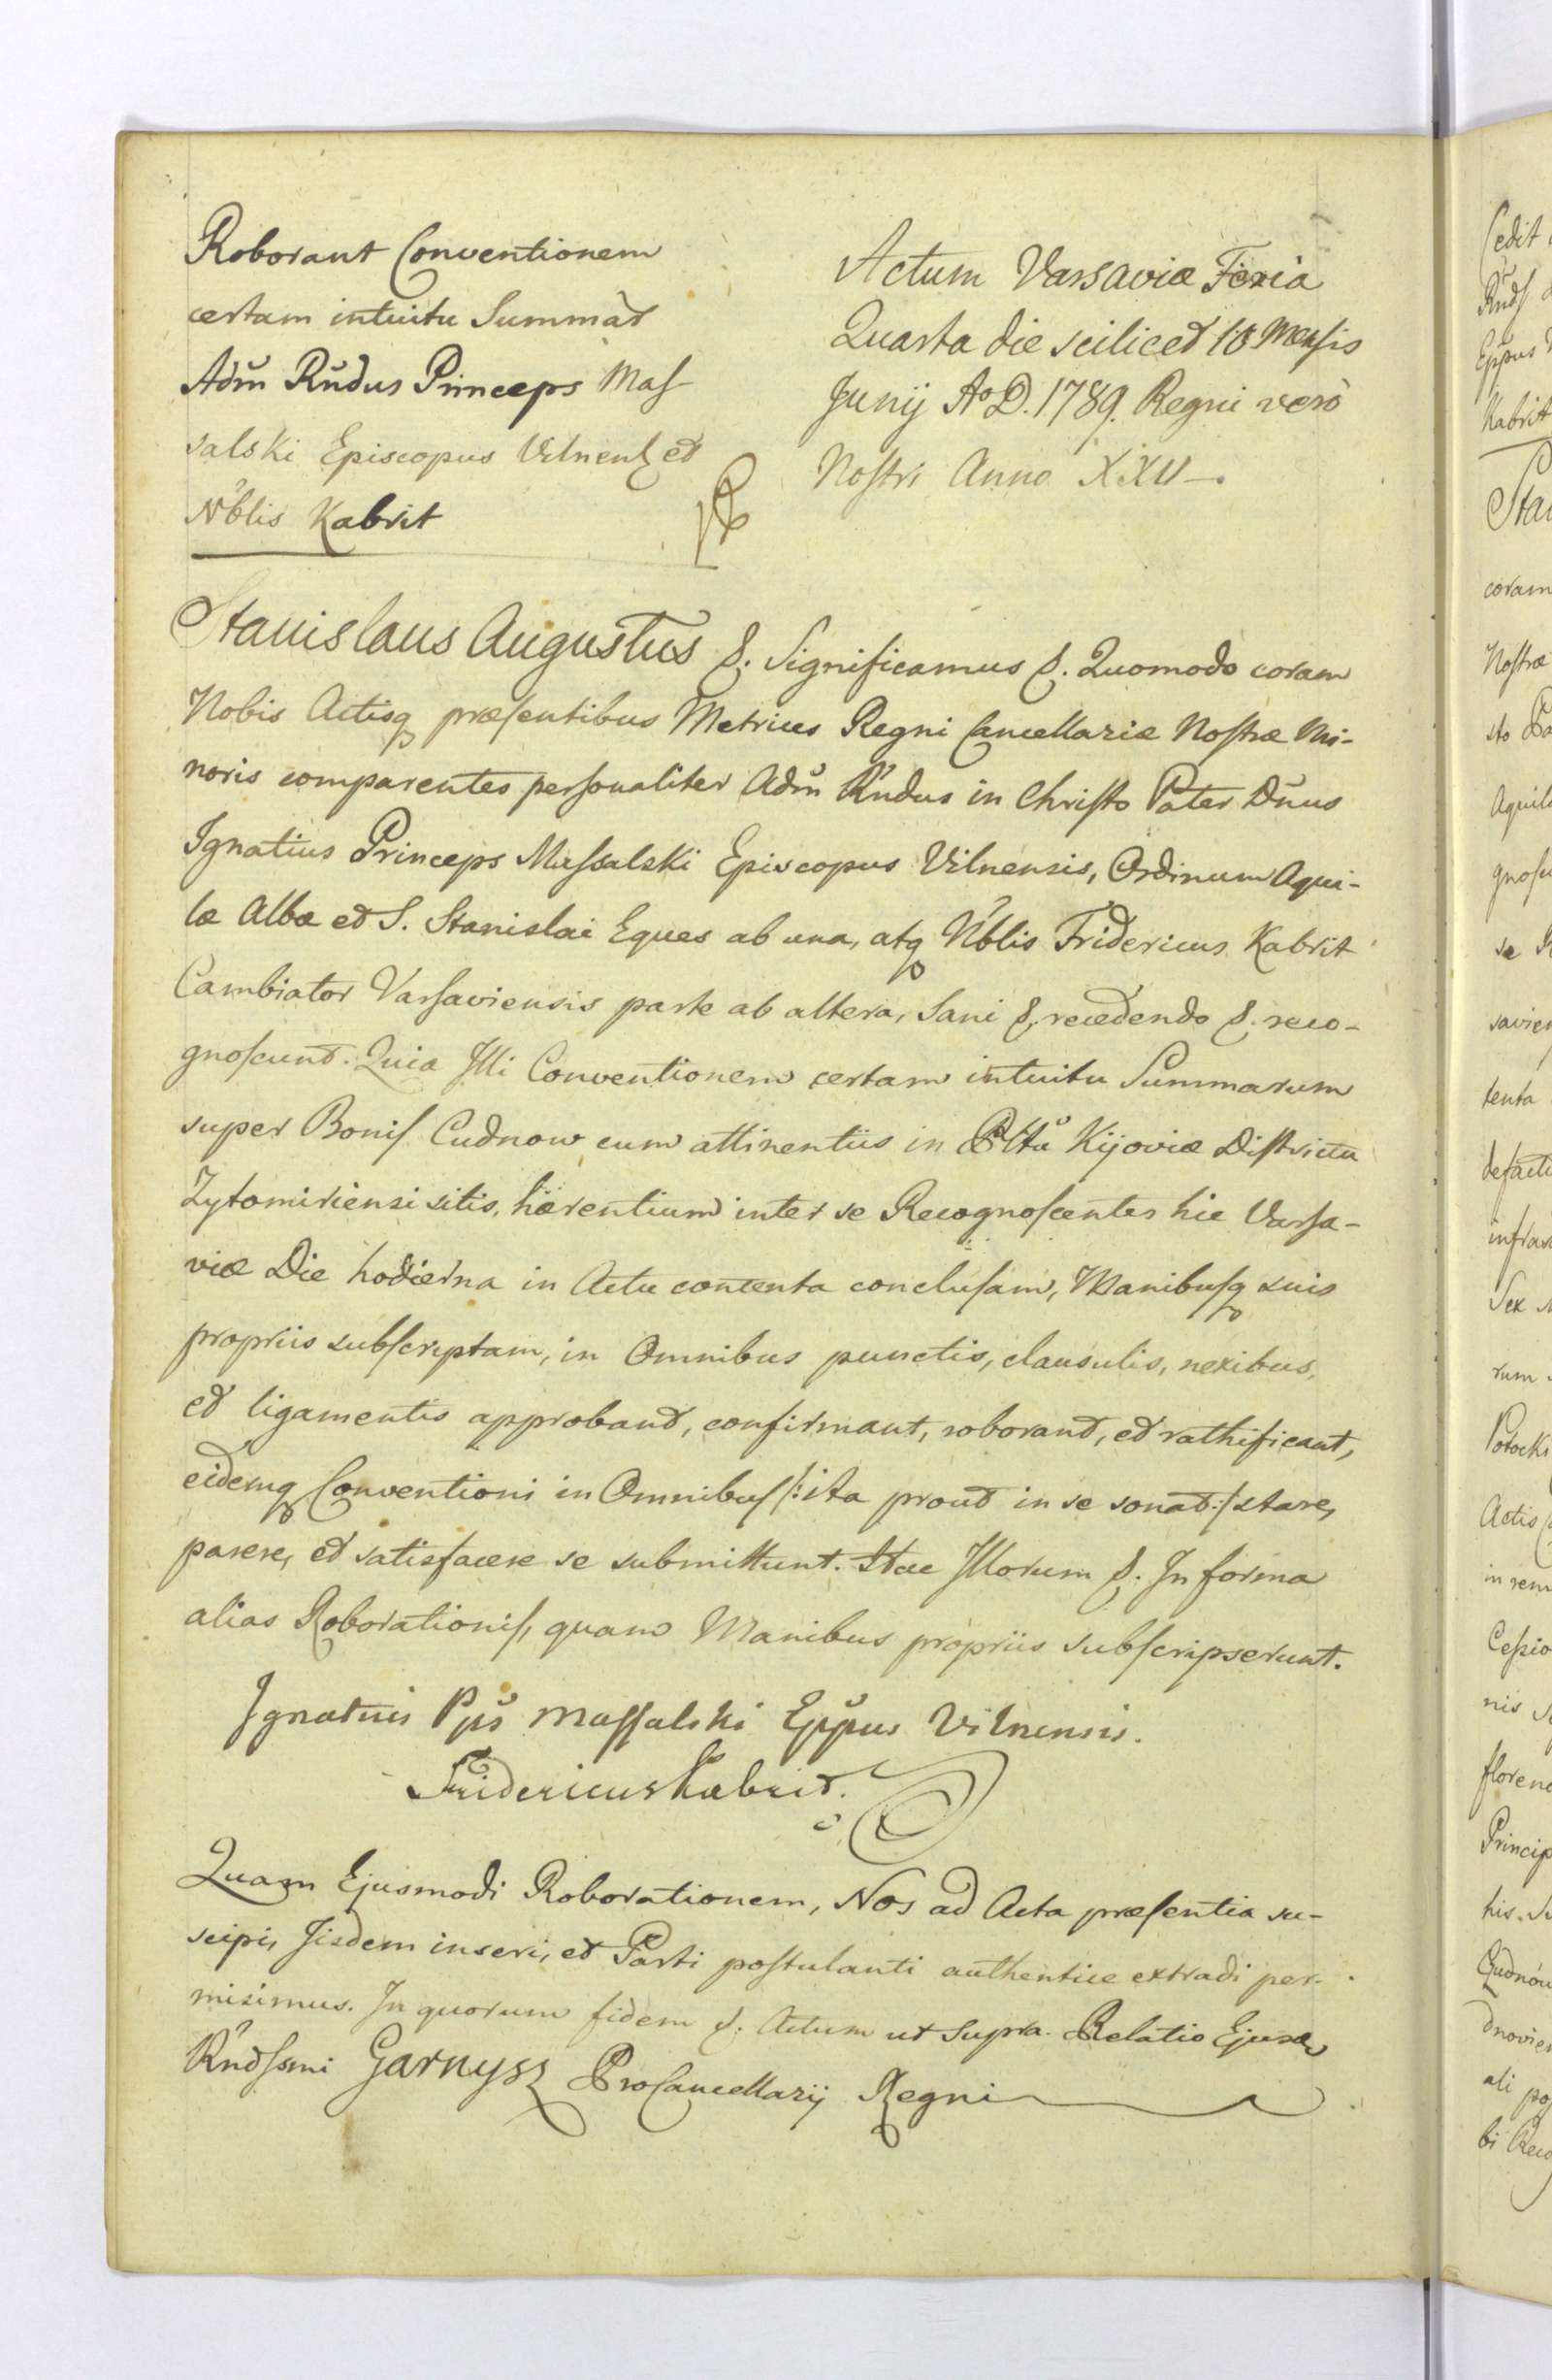 Roborant Conventionem
certam intuitu Summar
Adm̃ Rñdus Princeps Mas-
salski Episcopus Vilnens et
Nblis Kabrit
Actum Varsaviæ Feria
Quarta die scilicet 10 Mensis
Junij Ao D. 1789. Regni verò
Nostri Anno XXV.
Stanislaus Augustus &. Significamus &. Quomodo coram
Nobis Actisq præsentibus Metrices Regni Cancellariæ Nostræ Mi-
noris comparentes personaliter Adm̃ Rñdus in Christo Pater Dñus
Ignatius Princeps Massalski Episcopus Vilnensis, Ordinum Aqui-
læ Albæ et S. Stanislai Eques ab una, atq Nblis Fridericus Kabrit
Cambiator Varsaviensis parte ab altera, Sani &. recedendo &. reco-
gnoscunt. Quia Illi Conventionem certam intuitu Summarum
super Bonis Cudnow cum attinentiis in Pltu Kijoviæ Districtu
Zytomiriensi sitis, hærentium inter se Recognoscentes hic Varsa-
viæ Die hodierna in Actu contenta conclusam, Manibusq suis
propriis subscriptam, in Omnibus punctis, clausulis, nexibus,
et ligamentis approbant, confirmant, roborant, et rathificant,
eidemq Conventioni in Omnibus /:ita prout in se sonat:/ stare,
parere, et satisfacere se submittunt. Hac Illorum &. In forma
alias Roborationis, quam Manibus propriis subscripserunt.
Ignatius Pps Massalski Eppus Vilnensis.
Fridericus Kabrit.
Quam Ejusmodi Roborationem, Nos ad Acta præsentia su-
scipi, Iisdem inseri, et Parti postulanti authentice extradi per-
misimus. In quorum fidem &. Actum ut Supra. Relatio Ejusdem
Rñdssmi Garnysz ProCancellarij Regni